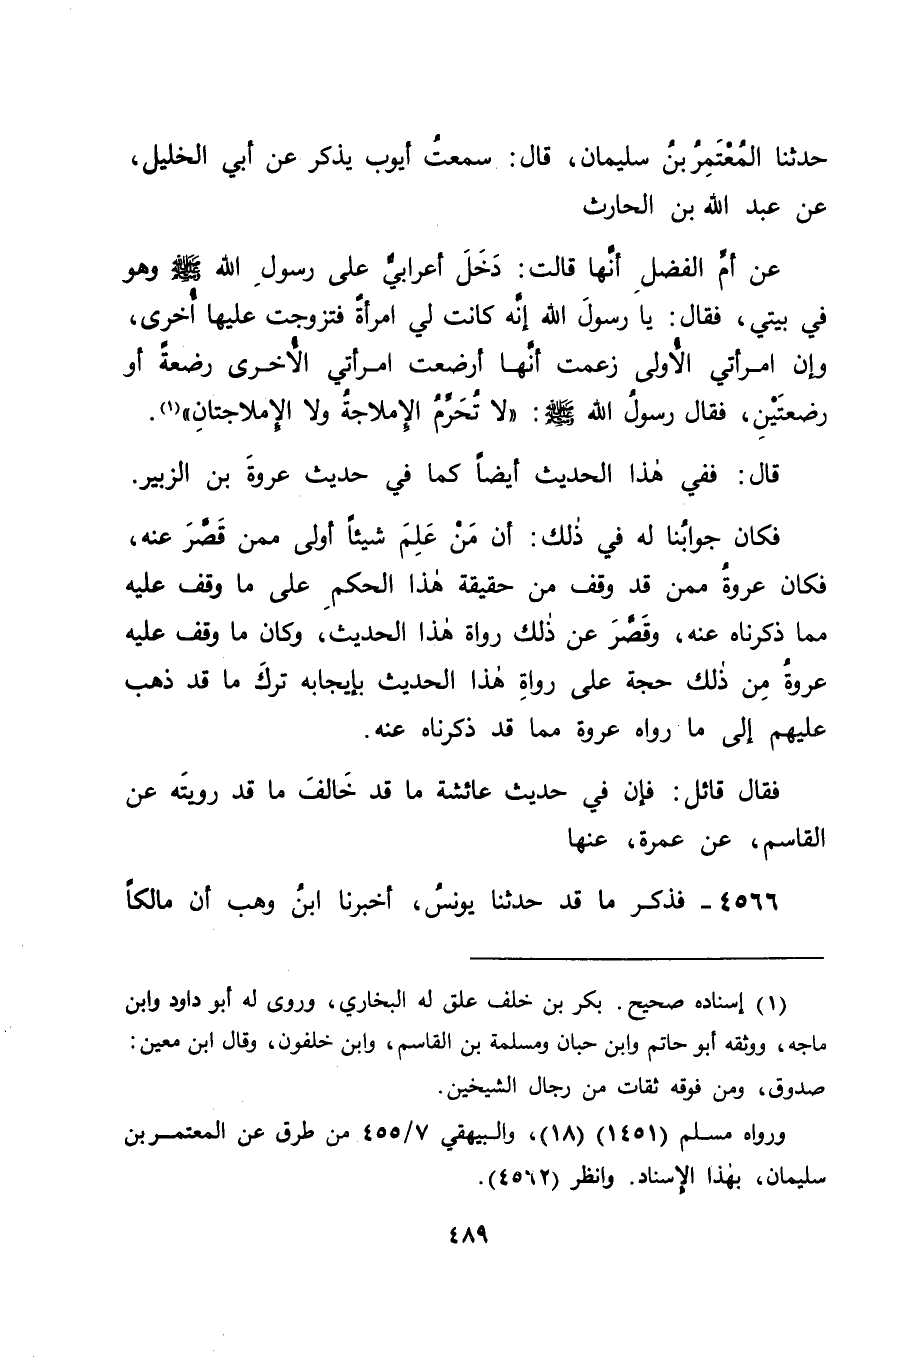 حدثنا المُعْتَمِرُ بنُ سليمان، قال: سمعتُ أيوب يذكر عن أبي الخليل،
عن عبد الله بن الحارث
عن أمِّ الفضلِ أنَّها قالت: دَخَلَ أعرابيٌّ على رسولِ الله ﷺ وهو
في بيتي، فقال: يا رسولَ الله إنَّه كانت لي امرأةٌ فتزوجت عليها أُخرى،
وإن امرأتي الأُولى زعمت أنَّها أرضعت امرأتي الأُخرى رضعةً أو
رضعتَيْنِ، فقال رسولُ الله ﷺ: «لا تُحَرِّمُ الإملاجةُ ولا الإملاجتانِ»(١).
قال: ففي هٰذا الحديث أيضاً كما في حديث عروةَ بن الزبير.
فكان جوابُنا له في ذٰلك: أن مَنْ عَلِمَ شيئاً أولى ممن قَصَّرَ عنه،
فكان عروةُ ممن قد وقف من حقيقة هٰذا الحكمِ على ما وقف عليه
مما ذكرناه عنه، وقَصَّرَ عن ذٰلك رواة هٰذا الحديث، وكان ما وقف عليه
عروةُ مِن ذٰلك حجة على رواةِ هٰذا الحديث بإيجابه تركَ ما قد ذهب
عليهم إلى ما رواه عروة مما قد ذكرناه عنه.
فقال قائل: فإن في حديث عائشة ما قد خَالفَ ما قد رويتَه عن
القاسم، عن عمرة، عنها
٤٥٦٦ - فذكر ما قد حدثنا يونسُ، أخبرنا ابنُ وهب أن مالكاً
(١) إسناده صحيح. بكر بن خلف علق له البخاري، وروى له أبو داود وابن
ماجه، ووثقه أبو حاتم وابن حبان ومسلمة بن القاسم، وابن خلفون، وقال ابن معين:
صدوق، ومن فوقه ثقات من رجال الشيخين.
ورواه مسلم (١٤٥١) (١٨)، والبيهقي ٤٥٥/٧ من طرق عن المعتمر بن
سليمان، بهٰذا الإسناد. وانظر (٤٥٦٢).
٤٨٩